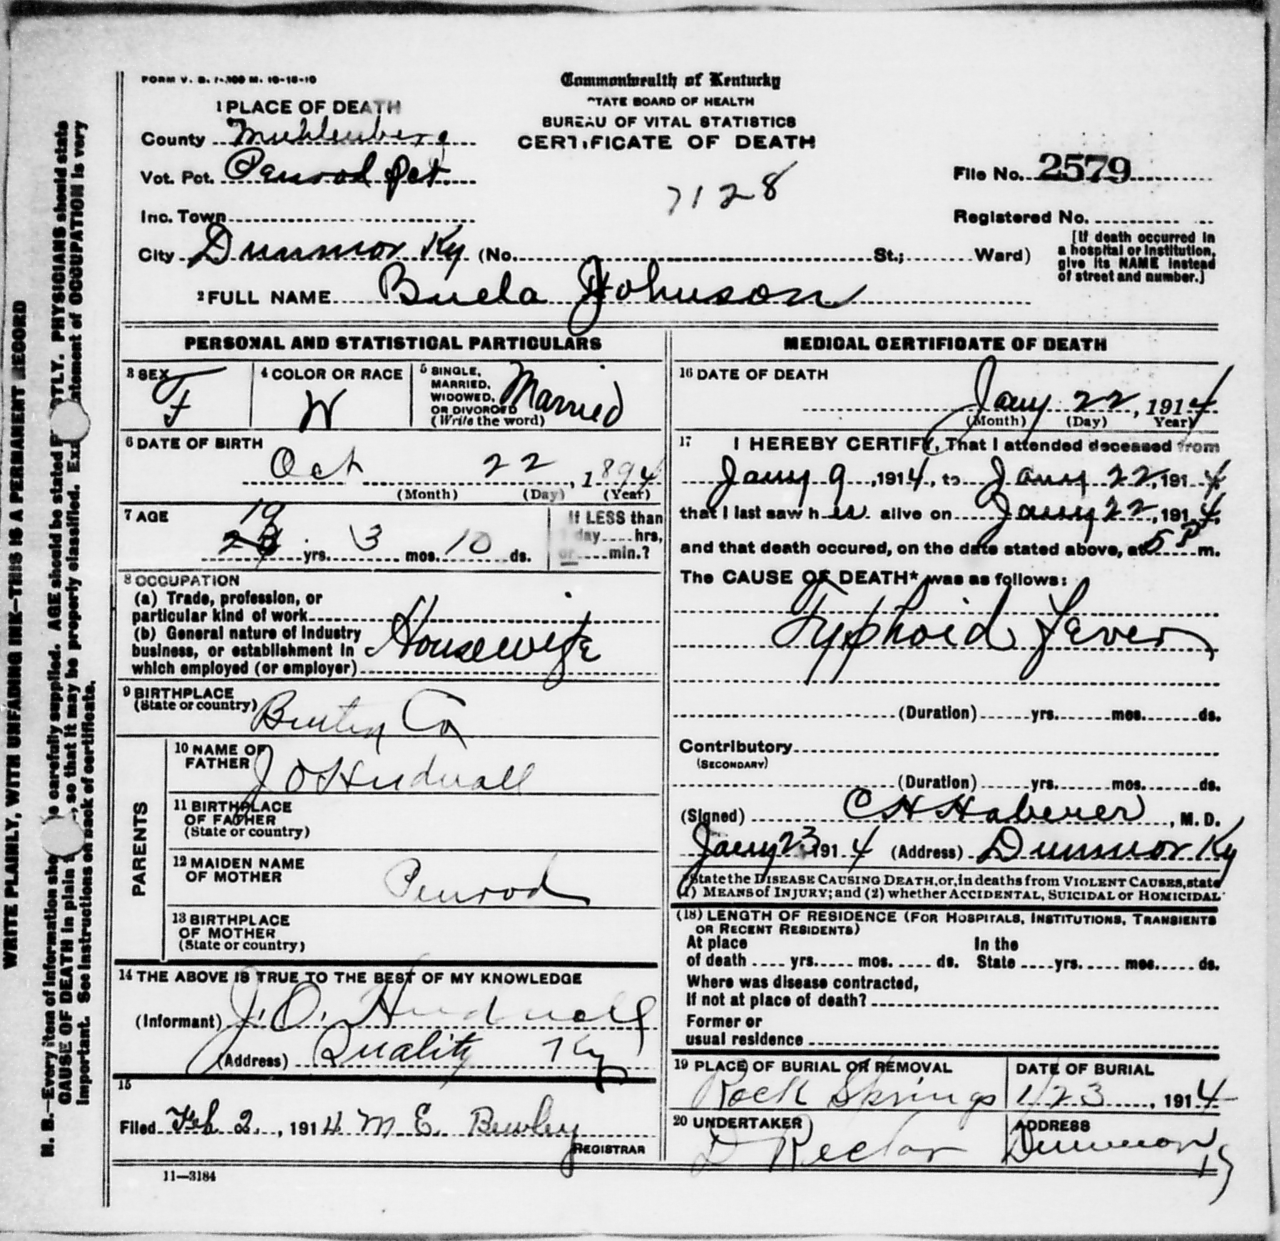 FORM V. S. 1-300 M. 10-18-10
Commonwealth of Kentucky
STATE BOARD OF HEALTH
BUREAU OF VITAL STATISTICS
CERTIFICATE OF DEATH
7128
1 PLACE OF DEATH
County Muhlenberg
Vot. Pct. Penrod Pct.
Inc. Town
City Dunmor Ky (No. St.; Ward)
File No. 2579
Registered No.
[If death occurred in
a hospital or institution,
give its NAME instead
of street and number.]
2 FULL NAME Buela Johnson
PERSONAL AND STATISTICAL PARTICULARS
3 SEX
F
4 COLOR OR RACE
W
5 SINGLE,
MARRIED,
WIDOWED,
OR DIVORCED
(Write the word)
Married
6 DATE OF BIRTH
Oct 22, 1894
(Month) (Day) (Year)
7 AGE
19
yrs. 3 mos. 10 ds.
If LESS than
1 day hrs,
or min.?
8 OCCUPATION
(a) Trade, profession, or
particular kind of work
(b) General nature of industry
business, or establishment in
which employed (or employer)
Housewife
9 BIRTHPLACE
(State or country)
Co
PARENTS
10 NAME OF
FATHER
J O Hudnall
11 BIRTHPLACE
OF FATHER
(State or country)
12 MAIDEN NAME
OF MOTHER
Penrod
13 BIRTHPLACE
OF MOTHER
(State or country)
14 THE ABOVE IS TRUE TO THE BEST OF MY KNOWLEDGE
(Informant) J. O. Hudnall
(Address) Quality Ky
15
Filed Feb 2, 1914 M E Bewley
REGISTRAR
11—3184
MEDICAL CERTIFICATE OF DEATH
16 DATE OF DEATH
Jany 22, 1914
(Month) (Day) Year)
17 I HEREBY CERTIFY, That I attended deceased from
Jany 9, 1914, to Jany 22, 1914
that I last saw her alive on Jany 22, 1914,
and that death occured, on the date stated above, at 5 P m.
The CAUSE OF DEATH* was as follows:
Typhoid Fever
(Duration) yrs. mos. ds.
Contributory
(SECONDARY)
(Duration) yrs. mos. ds.
(Signed) C H Haberer, M. D.
Jany 23 1914 (Address) Dunmor Ky
*State the DISEASE CAUSING DEATH, or, in deaths from VIOLENT CAUSES, state
(1) MEANS OF INJURY; and (2) whether ACCIDENTAL, SUICIDAL or HOMICIDAL
(18) LENGTH OF RESIDENCE (FOR HOSPITALS, INSTITUTIONS, TRANSIENTS
OR RECENT RESIDENTS)
At place In the
of death yrs. mos. ds. State yrs. mos. ds.
Where was disease contracted,
If not at place of death?
Former or
usual residence
19 PLACE OF BURIAL OR REMOVAL
Rock Springs
DATE OF BURIAL
1/23, 1914
20 UNDERTAKER
D Rector
ADDRESS
Dunmor Ky
WRITE PLAINLY, WITH UNFADING INK—THIS IS A PERMANENT RECORD
N. B.—Every item of information should be carefully supplied. AGE should be stated EXACTLY. PHYSICIANS should state
CAUSE OF DEATH in plain, so that it may be properly classified. Exact statement of OCCUPATION is very
important. See instructions on back of certificate.